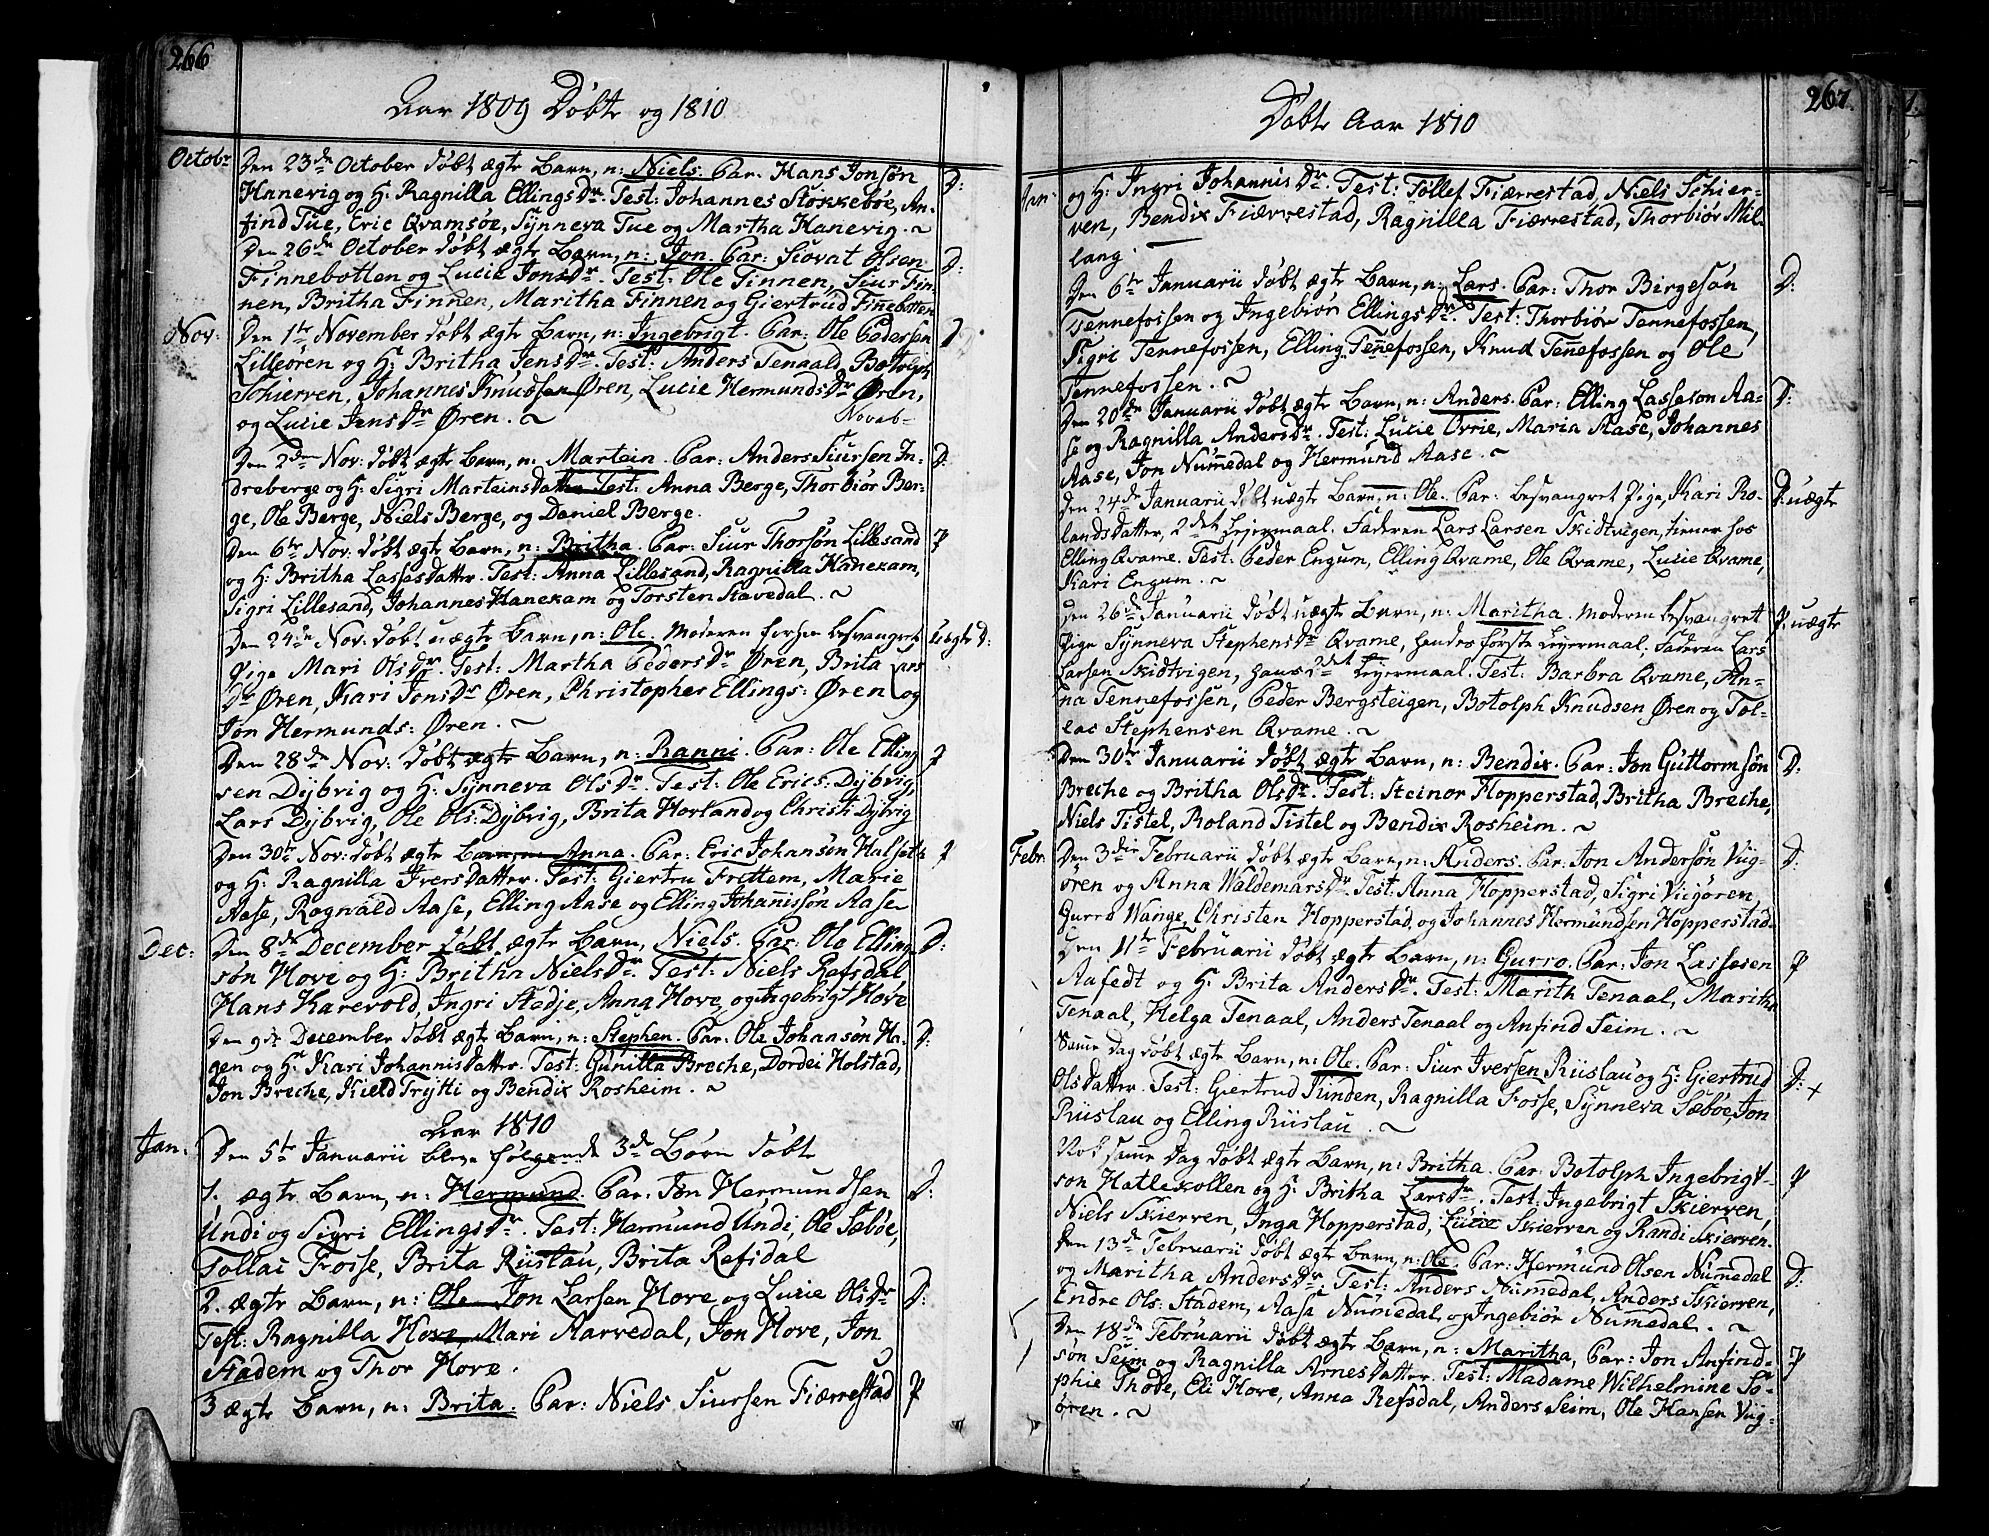 266
Aar 1809 Døbte og 1810
Octobr
Den 23de October døbt ægte Barn, n: Niels. Par: Hans Jonsøn D:
Hanevig og H: Ragnilla EllingsDr. Test: Johannes Stokkebøe, An-
find Tue, Eric Qvamsøe, Synneva Tue og Martha Hanevig.
Den 26de October døbt ægte Barn, n: Jon. Par: Siovat Olsen D:
Finnebotten og Lucie JonsDr. Test: Ole Finnen, Siur Fin-
nen, Britha Finnen, Maritha Finnen og Giertrud Finebotten
Nov: Den 1te November døbt ægte Barn, n: Ingebrigt. Par: Ole Pedersen D
Lilleøren og H: Britha JensDr. Test: Anders Tenaald, Botolph
Schierven, Johannes Knudsen Øren, Lucie HermundsDr Øren,
og Lucie JensDr Øren. Novab=
Den 2den Nov: døbt ægte Barn, n: Martein. Par: Anders Siursen In- D:
dreberge og H: Sigri MarteinsDatter Test: Anna Berge, Thorbiør Ber-
ge, Ole Berge, Niels Berge, og Daniel Berge.
Den 6te Nov. døbt ægte Barn, n: Britha. Par: Siur Thorsøn Lillesand P
og H: Britha LassesDatter. Test: Anna Lillesand, Ragnilla Hanekam,
Sigri Lillesand, Johannes Hanekam og Torsten Stavedal.
Den 24de Nov: døbt uægte Barn, n: Ole. Moderen besvangret Uægte D:
Pige Mari OlsDr. Test: Martha PedersDr Øren, Brita Lars
Dr Øren, Kari JonsDr Øren, Christopher Ellings: Øren og
Jon Hermunds: Øren.
Den 28de Nov: døbt ægte Barn, n: Ranni. Par: Ole Elling P
sen Dybvig og H: Synneva OlsDr. Test: Ole Erics: Dybvig,
Lars Dybvig, Ole Ols: Dybvig, Brita Hovland og Christi Dybvig
Den 30te Nov: døbt ægte Barn, n: Anna. Par: Eric Johansøn Halset P
og H: Ragnilla IversDatter. Test: Giertru Frettem, Marie
Aase, Ragnvald Aase, Elling Aase og Elling Johanissøn Aase
Dec: Den 8de December døbt ægte Barn, Niels. Par: Ole Elling D:
søn Hove og H: Britha NielsDr. Test: Niels Refsdal
Hans Harevold, Ingri Stedje, Anna Hove og Ingebrigt Hove
Den 9de December døbt ægte Barn, n: Stephen. Par: Ole Johansøn Ha- D:
gen og H: Kari JohannisDatter. Test: Gunilla Breche, Dordei Holstad,
Jon Breche, Kield Trytti og Bendix Rosheim.
Aar 1810
Jan: Den 5te Januarii bleve følgende 3de Børn døbt
1. ægte Barn, n: Hermund. Par: Jon Hermundsen D:
Undi og Sigri EllingsDr. Test: Hermund Undi, Ole Sæbøe,
Tollac Fosse, Brita Riislau, Brita Refsdal
2. ægte Barn, n: Ole Jon Larsen Hove og Lucie OlsDr D:
Test: Ragnilla Hove, Mari Aarvedal, Jon Hove, Jon
Stadem og Thor Hove.
3 ægte Barn, n: Brita. Par: Niels Siursen Fiærrestad P
267.
Døbte Aar 1810
Jan: og H: Ingri JohannisDr. Test: Tollef Fiærrestad, Niels Schier-
ven, Bendix Fiærrestad, Ragnilla Fiærrestad, Thorbiør Mil-
lang
Den 6te Januarii døbt ægte Barn, n: Lars. Par: Thor Birgesøn D:
Tennefossen og Ingebiør EllingsDr. Test: Thorbiør Tennefossen,
Sigri Tennefossen, Elling Tenefossen, Knud Tenefossen og Ole
Tennefossen.
Den 20de Januarii døbt ægte Barn, n: Anders. Par: Elling Lasseson Aa- D:
se og Ragnilla AndersDr. Test: Lucie Orrie, Maria Aase, Johannes
Aase, Jon Numedal og Hermund Aase.
Den 24de Januarii døbt uægte Barn, n: Ole. Par: besvangret Pige, Kari Ro- D: uægte
landsDatter, 2det Lejermaal. Faderen Lars Larsen Skidtvigen, tiener hos
Elling Qvame. Test: Peder Engum, Elling Qvame, Ole Qvame, Lucie Qvame,
Kari Engum.
Den 26de Januarii døbt uægte Barn, n: Maritha. Moderen besvangret P. uægte
Pige Synneva StephensDr Qvame, hendes første Lejermaal. Faderen Lars
Larsen Skidtvigen, hans 2det Lejermaal. Test: Barbra Qvame, An-
na Tennefossen, Peder Bergsteigen, Botolph Knudsen Øren og Tol-
lac Stephensen Qvame.
Den 30te Januarii døbt ægte Barn, n: Bendix. Par: Jon Guttormsøn D:
Breche og Britha OlsDr. Test: Steinor Hopperstad, Britha Breche,
Niels Tistel, Roland Tistel og Bendix Rosheim.
Febr: Den 3die Februarii døbt ægte Barn, n: Anders. Par: Jon Andersøn Viig- D:
øren og Anna WaldemarsDr. Test: Anna Hopperstad, Sigri Viigøren,
Gurro Wange, Christen Hopperstad, og Johannes Hermundsen Hopperstad.
Den 11te Februarii døbt ægte Barn, n: Gurro. Par: Jon Lassesen P
Aafedt og H: Brita AndersDr. Test: Marith Tenaal, Maritha
Tenaal, Helga Tenaal, Anders Tenaal og Anfind Seim.
Samme Dag døbt ægte Barn, n: Ole. Par: Siur Iversen Riislau og H: Giertrud D: +
OlsDatter. Test: Giertrud Tunden, Ragnilla Fosse, Synneva Sæbøe, Jon
Riislau og Elling Riislau.
Nok samme Dag døbt ægte Barn, n: Britha. Par: Botolph Ingebrigt- P
son Hatlekollen og H: Britha LarsDr. Test: Ingebrigt Skierven,
Niels Skierven, Inga Hopperstad, Lucie Skierven og Randi Skierven.
Den 13de Februarii døbt ægte Barn, n: Ole. Par: Hermund Olsen Numedal D:
og Maritha AndersDr. Test: Anders Numedal, Anders Skierven,
Endre Ols: Stadem, Aase Numedal og Ingebiør Numedal.
Den 18de Februarii døbt ægte Barn, n: Maritha, Par: Jon Anfind- P
søn Seim og Ragnilla ArnesDatter. Test: Madame Wilhelmine So-
phie Thode, Eli Hove, Anna Refsdal, Anders Seim, Ole Hansen Viig-
øren.